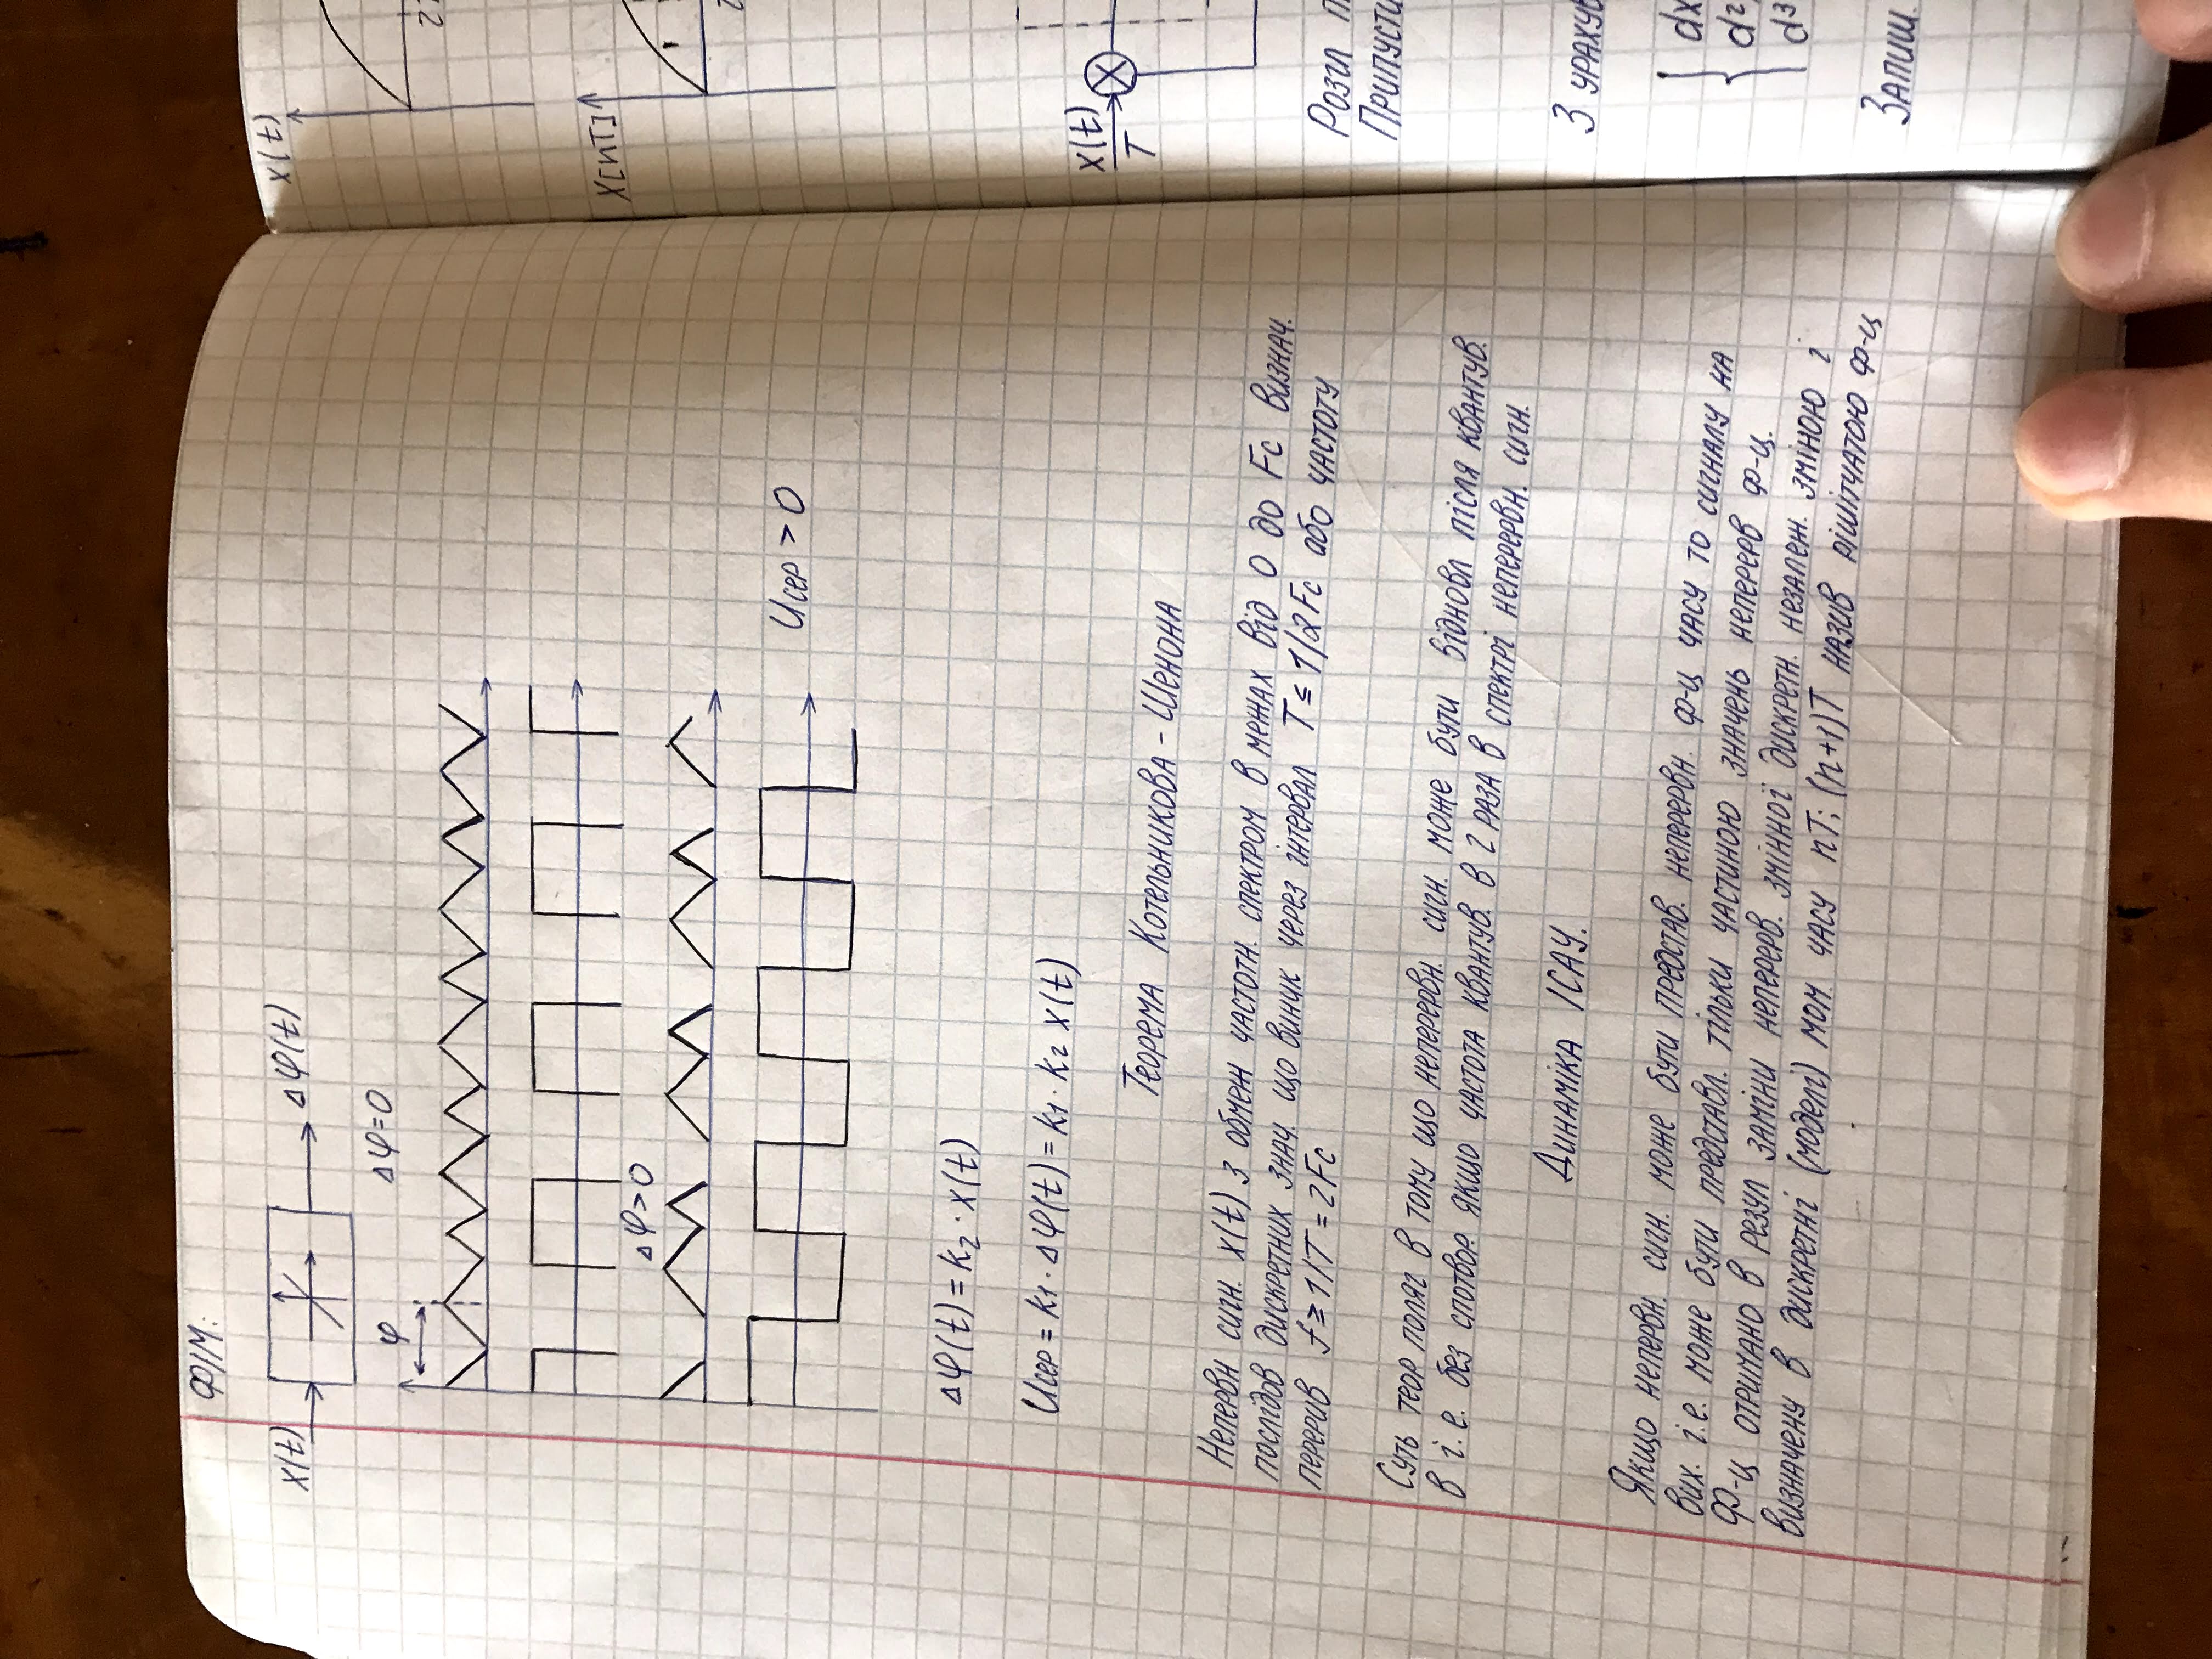 ФІМ:
x(t)
Δφ(t)
φ
Δφ=0
Δφ>0
Uсер > 0
Δφ(t) = k2 · x(t)
Uсер = k1 · Δφ(t) = k1 · k2 x(t)
Теорема Котельникова - Шенона
Непервн сигн. x(t) з обмеж частотн. спектром в межах від 0 до Fc визнач.
послідов дискретних знач. що виник через інтервал T ≤ 1/2Fc або частоту
перерив f ≥ 1/T = 2Fc
Суть теор поляг в тому що неперервн. сигн. може бути відновл після квантув.
в і.е. без спотвор. якщо частота квантув. в 2 раза в спектрі неперервн. сигн.
Динаміка ІСАУ.
Якщо непервн. сигн. може бути представ. неперервн. ф-ц часу то сигналу на
вих. і.е. може бути представл. тільки частиною значень неперерв ф-ц.
Ф-ц отримано в резул заміни неперерв. змінної дискретн. незалеж. зміною і
визначену в дискретні (моделі) мом. часу nT; (n+1)T назив рішітчатою ф-ц
x(t)
X[nT]
x(t)
T
Розгл
Припусти
З урахув
dx
d²
d³
Запиш.